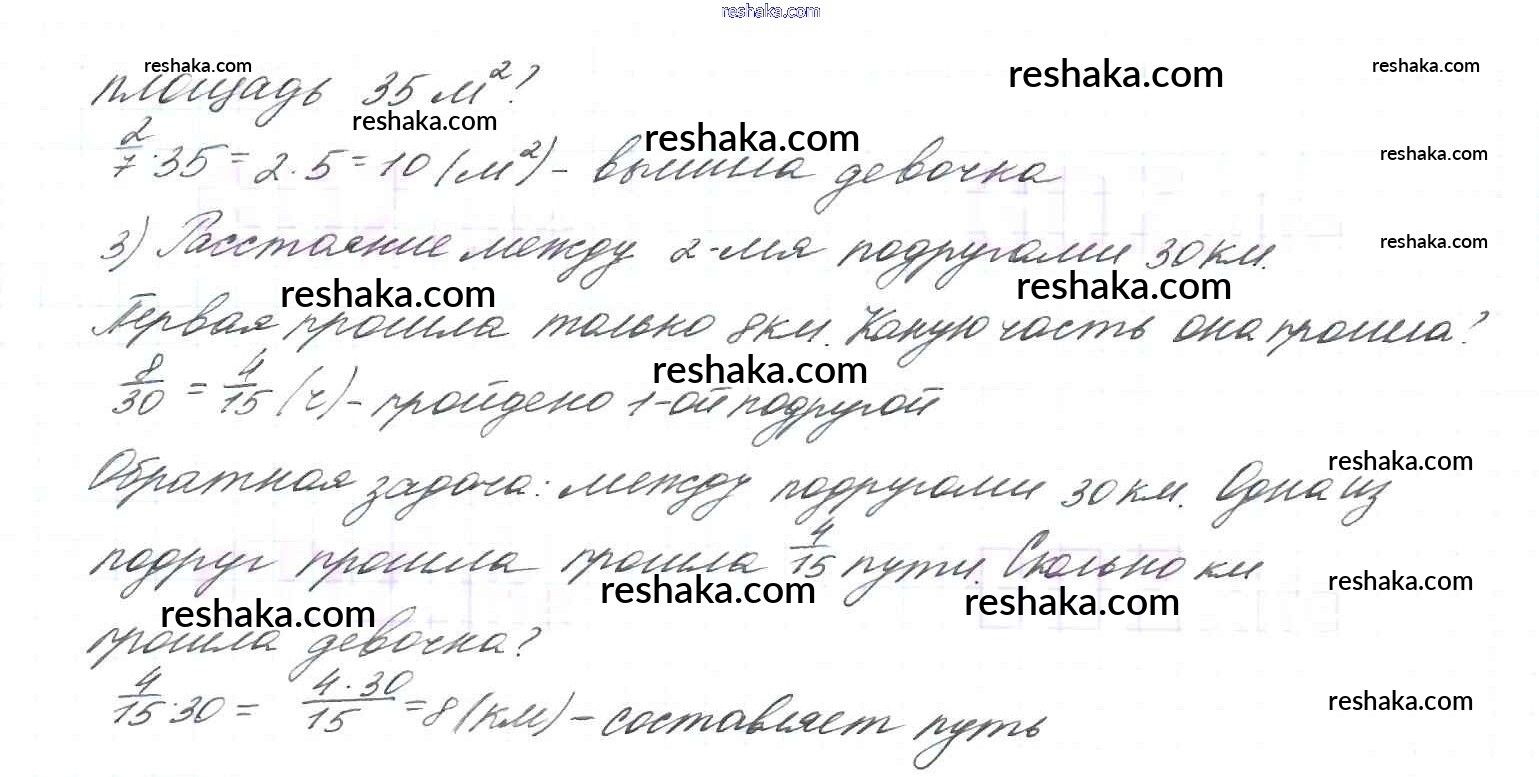 reshaka.com
reshaka.com reshaka.com reshaka.com
площадь 35 м²?
reshaka.com reshaka.com
2/7 · 35 = 2 · 5 = 10 (м²) – вымыла девочка
reshaka.com
3) Расстояние между 2-мя подругами 30 км.
reshaka.com
reshaka.com reshaka.com
Первая прошла только 8 км. Какую часть она прошла?
reshaka.com
8/30 = 4/15 (ч) – пройдено 1-ой подругой
reshaka.com
Обратная задача: между подругами 30 км. Одна из
подруг прошла прошла 4/15 пути. Сколько км
reshaka.com reshaka.com reshaka.com reshaka.com
прошла девочка?
4/15 · 30 = 4 · 30/15 = 8 (км) – составляет путь
reshaka.com